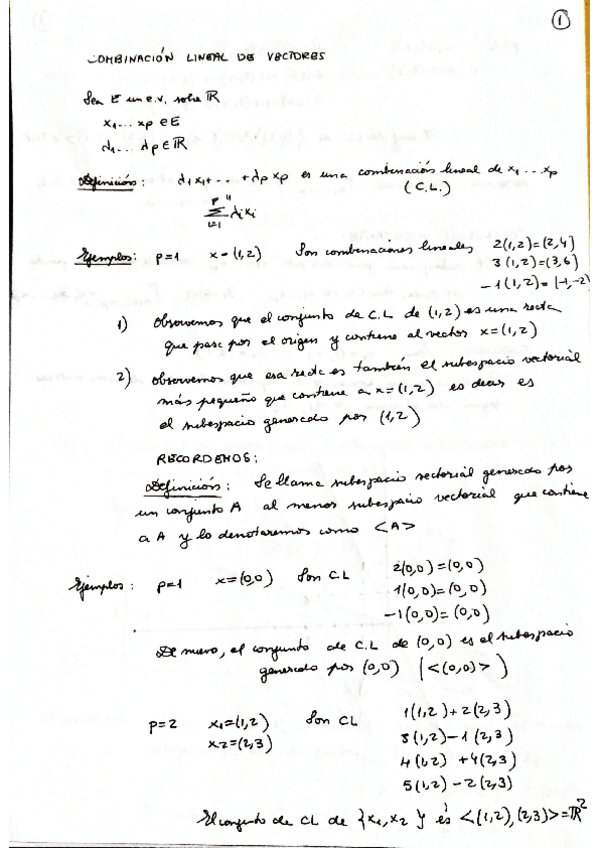 ①
COMBINACIÓN LINEAL DE VECTORES
Sea E un e.v. sobre ℝ
x₁ ... xp ∈ E
λ₁ ... λp ∈ ℝ
Definición: λ₁x₁+ ... +λp xp es una combinación lineal de x₁ ... xp
(C.L.)
"
∑ᵖᵢ₌₁ λᵢxᵢ
Ejemplos: p=1 x=(1,2) Son combinaciones lineales 2(1,2)=(2,4)
3(1,2)=(3,6)
-1(1,2)=(-1,-2)
1) Observemos que el conjunto de C.L. de (1,2) es una recta
que pasa por el origen y contiene al vector x=(1,2)
2) observemos que esa recta es también el subespacio vectorial
más pequeño que contiene a x=(1,2) es decir es
el subespacio generado por (1,2)
RECORDEMOS:
Definición: Se llama subespacio vectorial generado por
un conjunto A al menos subespacio vectorial que contiene
a A y lo denotaremos como <A>
Ejemplos: p=1 x=(0,0) Son CL 2(0,0)=(0,0)
1(0,0)=(0,0)
-1(0,0)=(0,0)
De nuevo, el conjunto de C.L de (0,0) es el subespacio
generado por (0,0) (<(0,0)>)
p=2 x₁=(1,2) Son CL 1(1,2)+2(2,3)
x₂=(2,3) 3(1,2)-1(2,3)
4(1,2)+4(2,3)
5(1,2)-2(2,3)
El conjunto de CL de {x₁,x₂} es <(1,2),(2,3)>=ℝ²